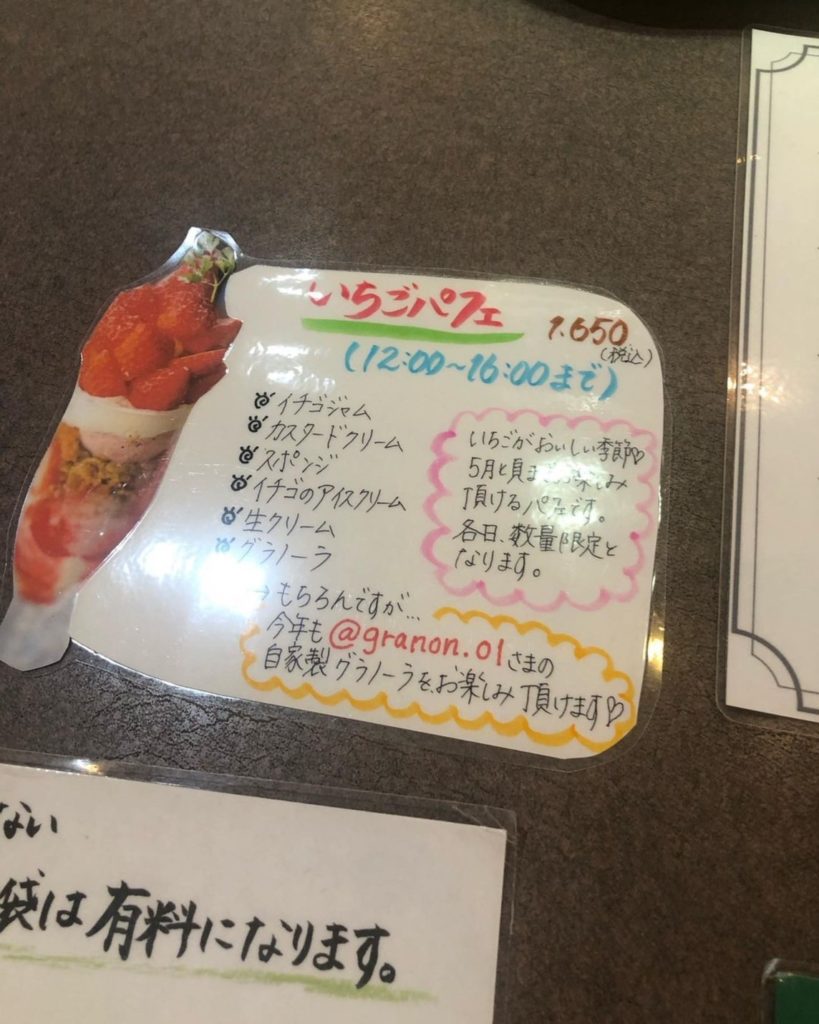 いちごパフェ 1.650
(税込)
(12:00~16:00まで)
イチゴジャム
カスタードクリーム
スポンジ
イチゴのアイスクリーム
生クリーム
グラノーラ
いちごがおいしい季節♡
5月と頁までお楽しみ
頂けるパフェです。
各日、数量限定と
なります。
→もちろんですが…
今年も @granon.01さまの
自家製グラノーラをお楽しみ頂けます♡
ない
袋は有料になります。